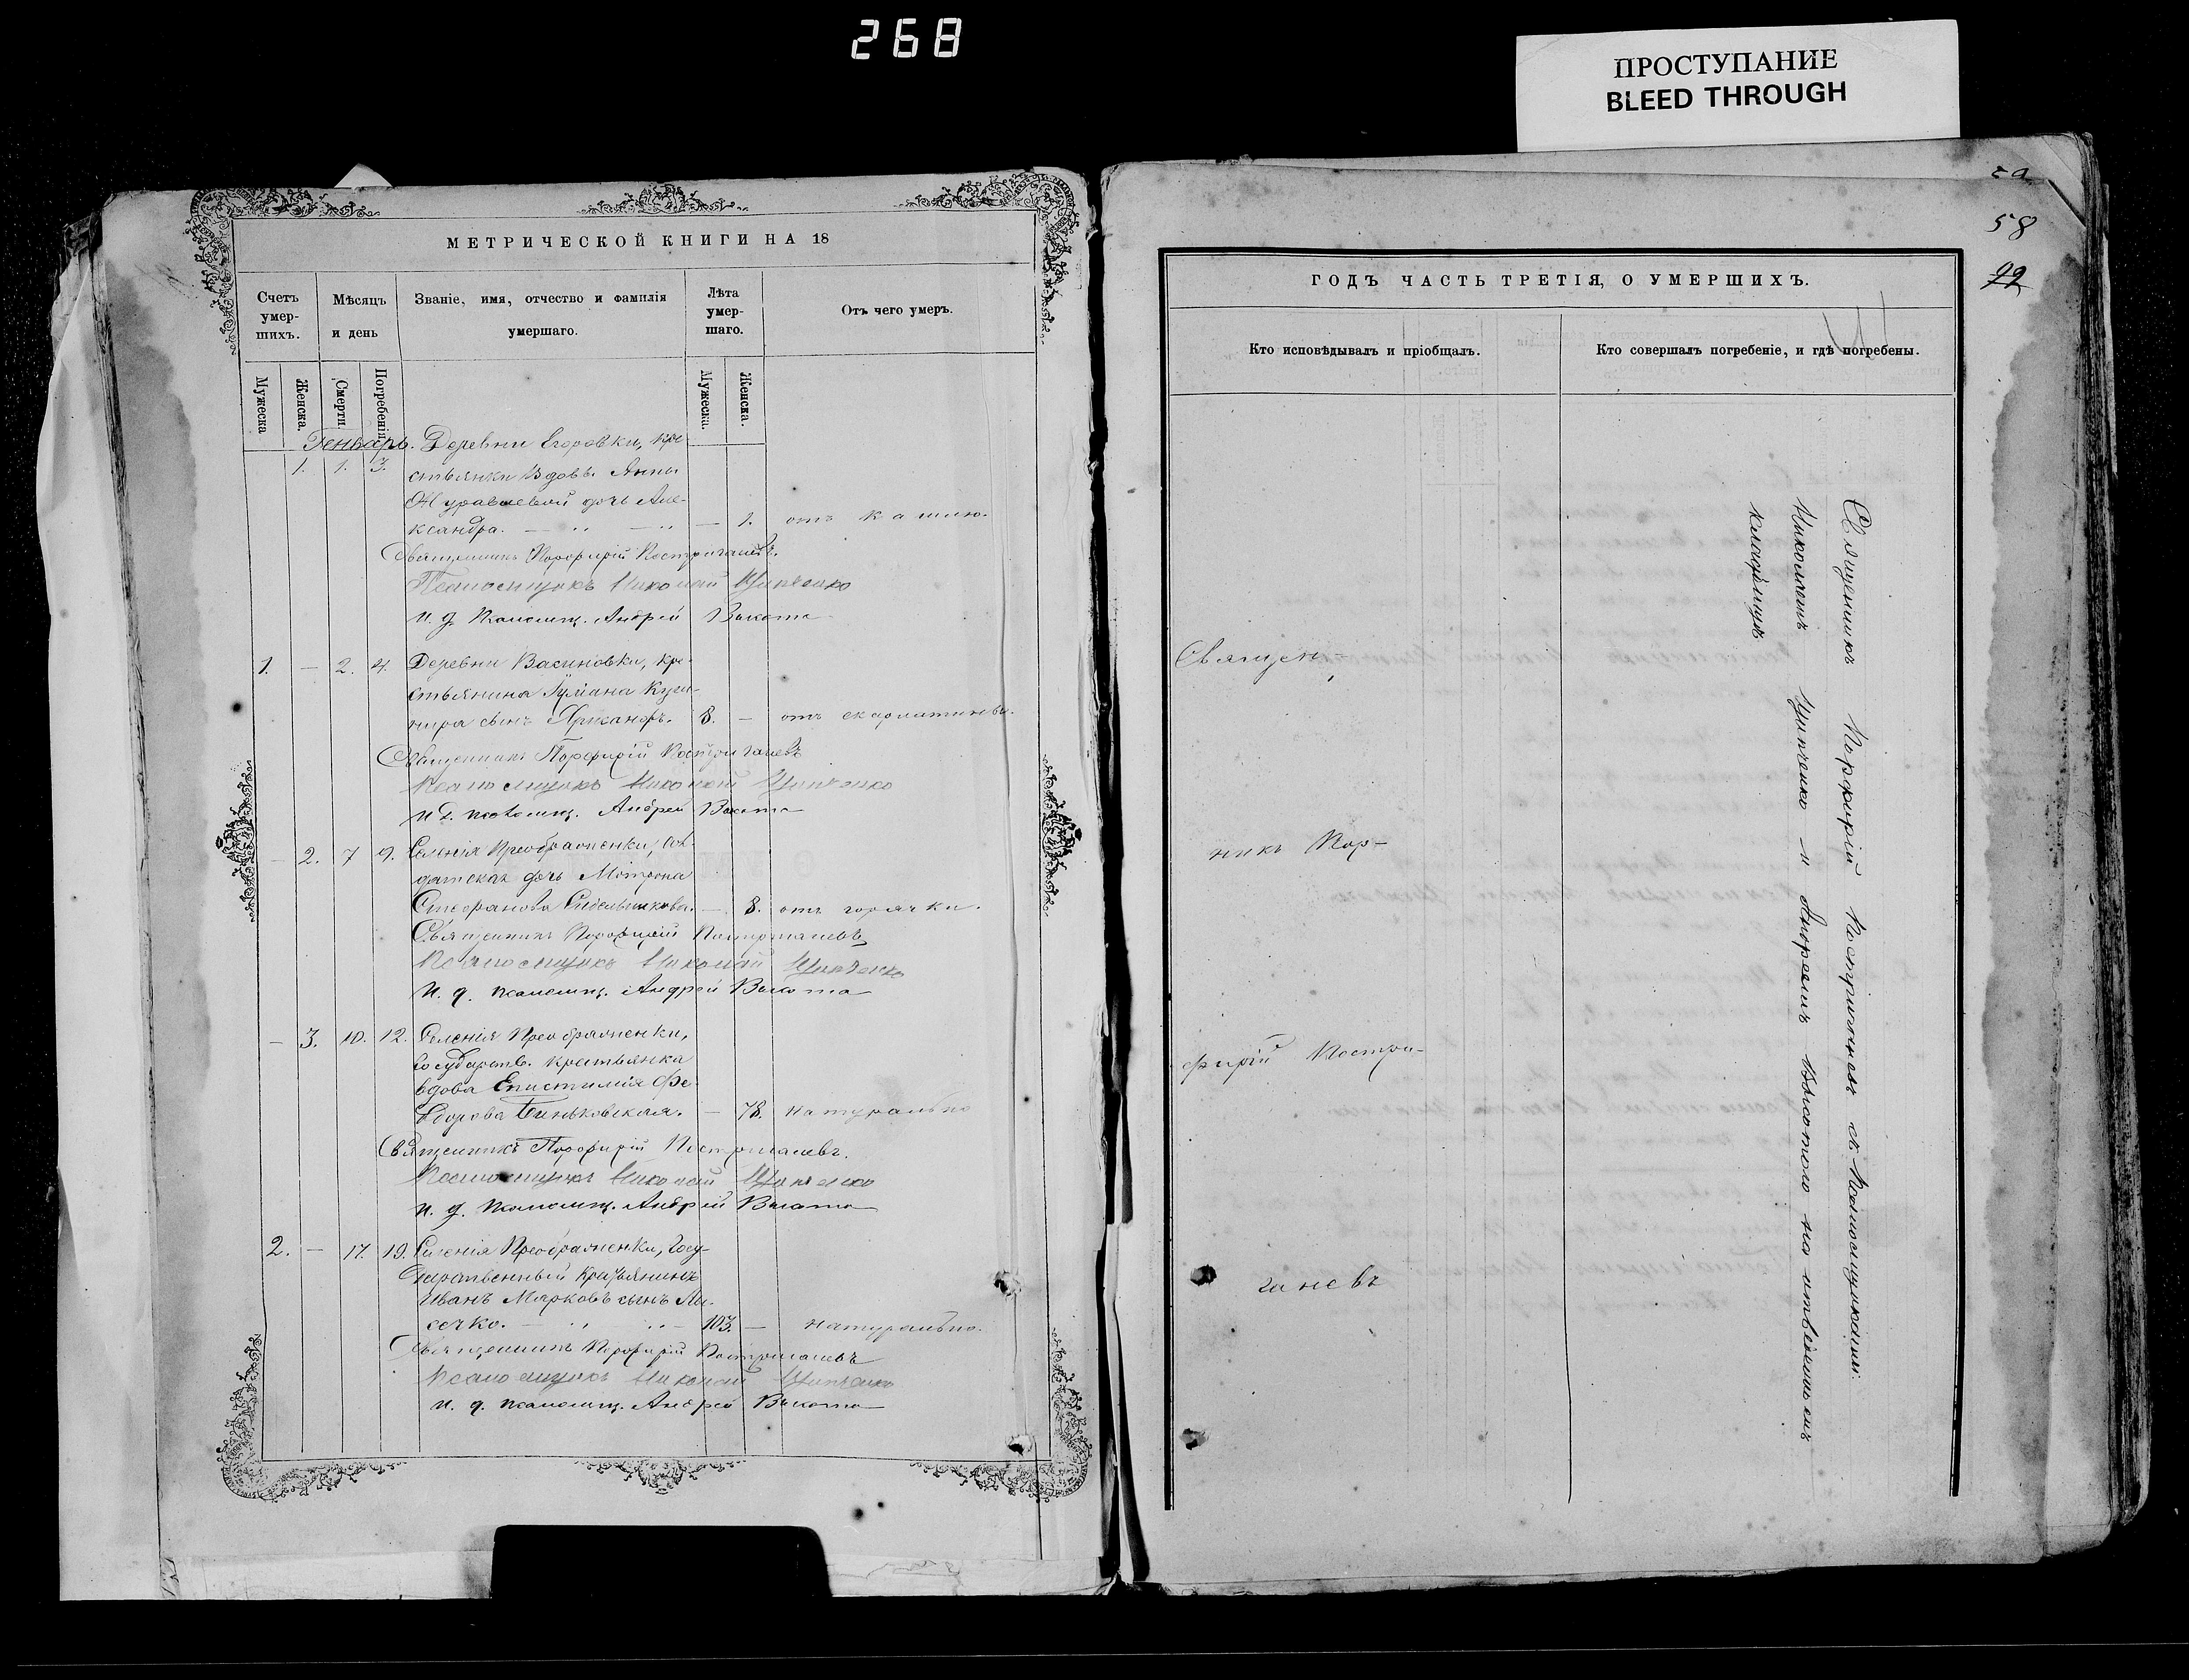 268
ПРОСТУПАНИЕ
BLEED THROUGH
МЕТРИЧЕСКОЙ КНИГИ НА 18
Счетъ умер-шихъ.
Мѣсяцъ и день
Званіе, имя, отчество и фамилія умершаго.
Лѣта умер-шаго.
Отъ чего умеръ.
Мужеска
Женска.
Смерти.
Погребенія.
Мужеска.
Женска.
Генварь. Деревни Егоровки, кре-
1. 1. 3. стьянки Вдовы Анны
Журавлевой дочь Але-
ксандра. — 1. отъ кашлю.
Священникъ Порфирій Костриганевъ.
Псаломщикъ Николай Ципченко
И. д. Псаломщ. Андрей Высота
1. — 2. 4. Деревни Васиновки, кре-
стьянина Куш-
нира сынъ 8. — отъ скарлатины.
Священникъ Порфирій Костриганевъ
Псаломщикъ Николай Ципченко
И. д. псаломщ. Андрей Высота
— 2. 7 9. Селенія Преображенки, сол-
датская дочь Мотрона
Стефанова Сидельникова. — 8. отъ горячки.
Священникъ Порфирій Костриганевъ
Псаломщикъ Николай Ципченко
И. д. псаломщ. Андрей Высота
— 3. 10. 12. Селенія Преображенки,
государств. крестьянка
вдова Епистимія Фе-
одорова — 78. натурально
Священникъ Порфирій Костриганевъ.
Псаломщикъ Николай Ципченко
И. д. псаломщ. Андрей Высота
2. — 17. 19. Селенія Преображенки, Госу-
дарственный крестьянинъ
Иванъ Марковъ сынъ Лы-
сечко. — 103. — натурально.
Священникъ Порфирій Костриганевъ
Псаломщикъ Николай Ципченко
И. д. псаломщ. Андрей Высота
58
ГОДЪ ЧАСТЬ ТРЕТІЯ, О УМЕРШИХЪ.
Кто исповѣдывалъ и пріобщалъ.
Кто совершалъ погребеніе, и гдѣ погребены.
Священ-
никъ Пор-
фирій Костри-
ганевъ
Священникъ Порфирій Костриганевъ съ Псаломщиками:
Николаемъ Ципченко и Андреемъ Высотою на
кладбищѣ